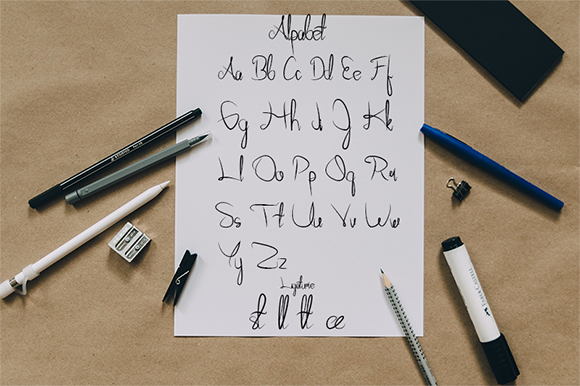 Alpabet
Aa Bb Cc Dd Ee Ff
Gg Hh Ii Jj Kk
Ll Oo Pp Qq Rr
Ss Tt Uu Vv Ww
Yy Zz
st ll tt